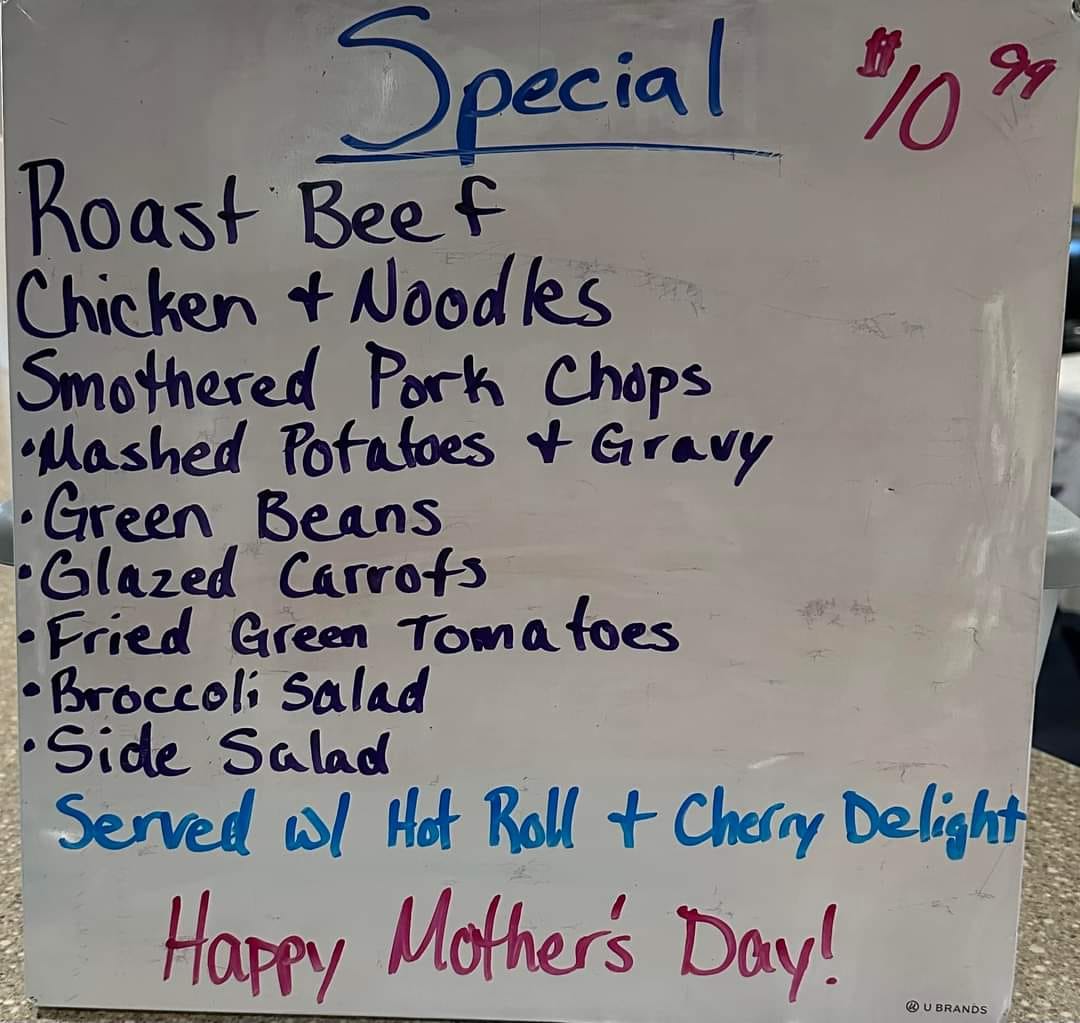 Special $10.99
Roast Beef
Chicken + Noodles
Smothered Pork Chops
•Mashed Potatoes + Gravy
•Green Beans
•Glazed Carrots
•Fried Green Tomatoes
•Broccoli Salad
•Side Salad
Served w/ Hot Roll + Cherry Delight
Happy Mother's Day!
U BRANDS